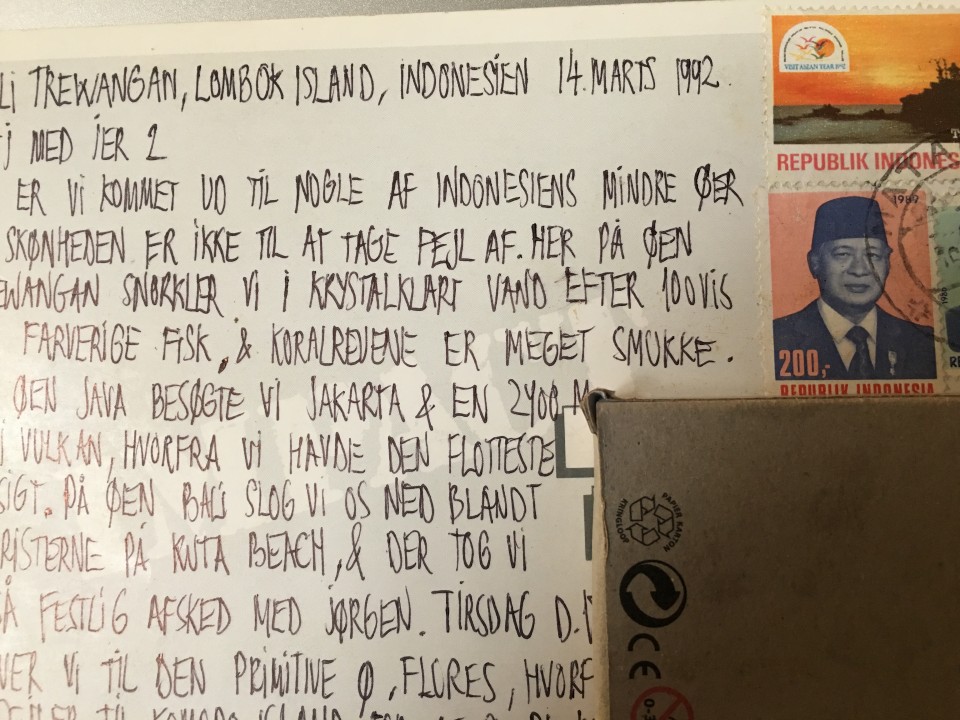 LI TREWANGAN, LOMBOK ISLAND, INDONESIEN 14. MARTS 1992.
MED IER 2
ER VI KOMMET UD TIL NOGLE AF INDONESIENS MINDRE ØER
SKØNHEDEN ER IKKE TIL AT TAGE FEJL AF. HER PÅ ØEN
EWANGAN SNORKLER VI I KRYSTALKLART VAND EFTER 100VIS
FARVERIGE FISK, & KORALREVENE ER MEGET SMUKKE.
ØEN JAVA BESØGTE VI JAKARTA & EN 2400 M
VULKAN, HVORFRA VI HAVDE DEN FLOTTESTE
SIGT. PÅ ØEN BALI SLOG VI OS NED BLANDT
RISTERNE PÅ KUTA BEACH, & DER TOG VI
Å FESTLIG AFSKED MED JØRGEN. TIRSDAG D. 1
VER VI TIL DEN PRIMITIVE Ø, FLORES, HVORF
TIL KOMODO ISLAND
VISIT ASEAN YEAR 1992
REPUBLIK INDONES
1989
200,-
REPUBLIK INDONESIA
1988
PAPIER KARTON
CE
0-3